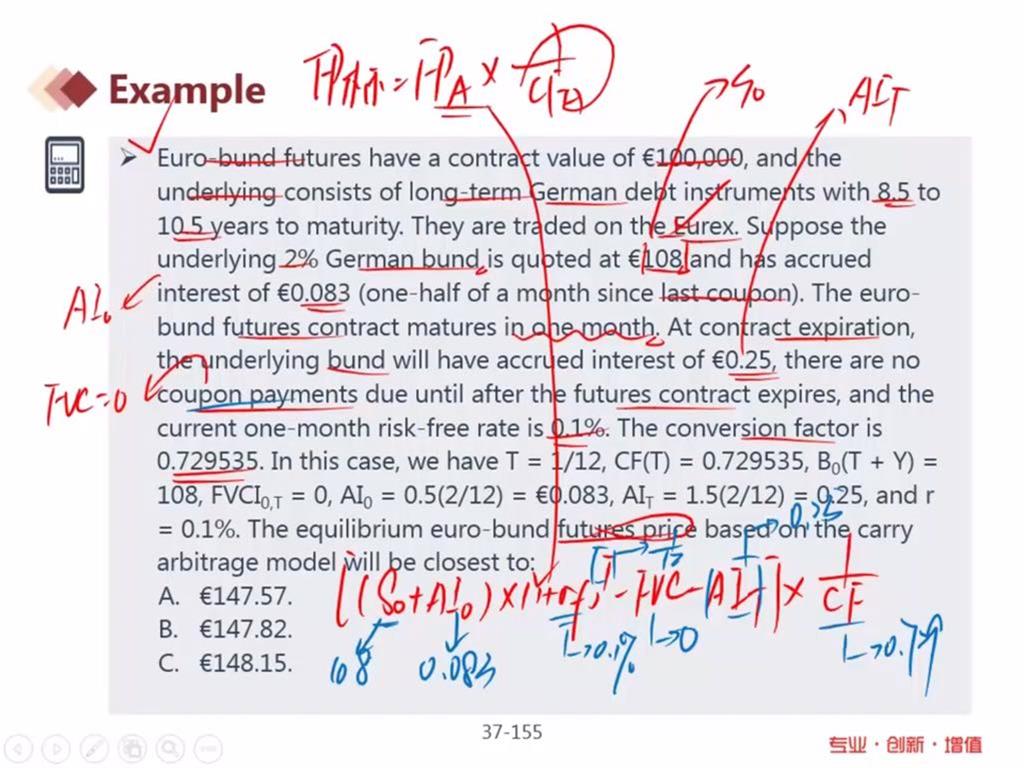 Example
FP标准=FPA×1/CF
S₀
AIT
➤ Euro-bund futures have a contract value of €100,000, and the
underlying consists of long-term German debt instruments with 8.5 to
10.5 years to maturity. They are traded on the Eurex. Suppose the
underlying 2% German bund is quoted at €108 and has accrued
interest of €0.083 (one-half of a month since last coupon). The euro-
bund futures contract matures in one month. At contract expiration,
the underlying bund will have accrued interest of €0.25, there are no
coupon payments due until after the futures contract expires, and the
current one-month risk-free rate is 0.1%. The conversion factor is
0.729535. In this case, we have T = 1/12, CF(T) = 0.729535, B₀(T + Y) =
108, FVCI₀,T = 0, AI₀ = 0.5(2/12) = €0.083, AIT = 1.5(2/12) = 0.25, and r
= 0.1%. The equilibrium euro-bund futures price based on the carry
arbitrage model will be closest to:
AI₀
FVC=0
0.25
[(S₀+AI₀)×(1+rf)ᵀ-FVC-AIT]×1/CF
A. €147.57.
B. €147.82.
C. €148.15.
108
0.083
0.1%
0
37-155
专业·创新·增值